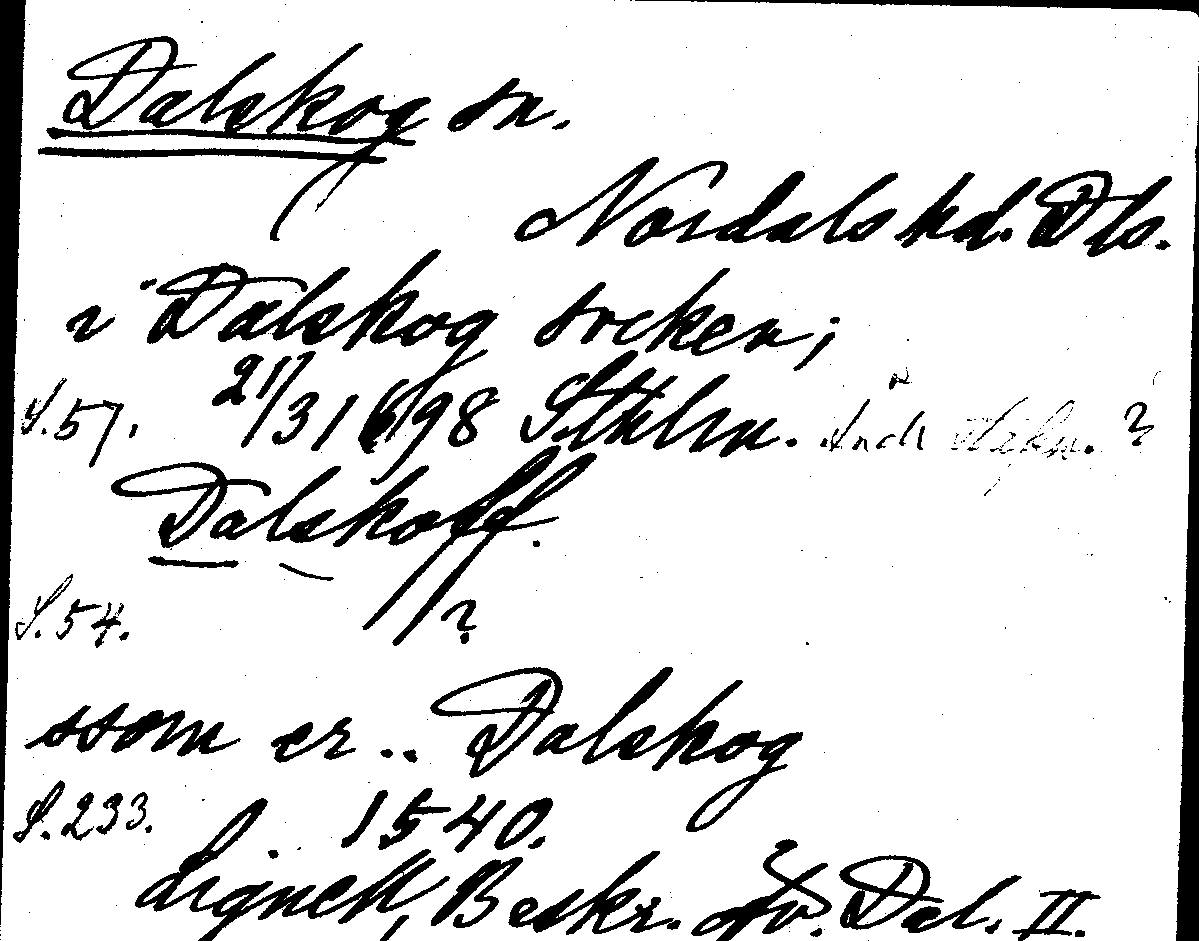 Dalskog sn.
Nordals hd. Dls.
i Dalskog socken;
S.57. 21/3 1698 Sthlm.
Dalskoff.
S.54. ?
ssom er.. Dalskog
S.233. 1540.
Lignell, Beskr. öfv. Dal. II.